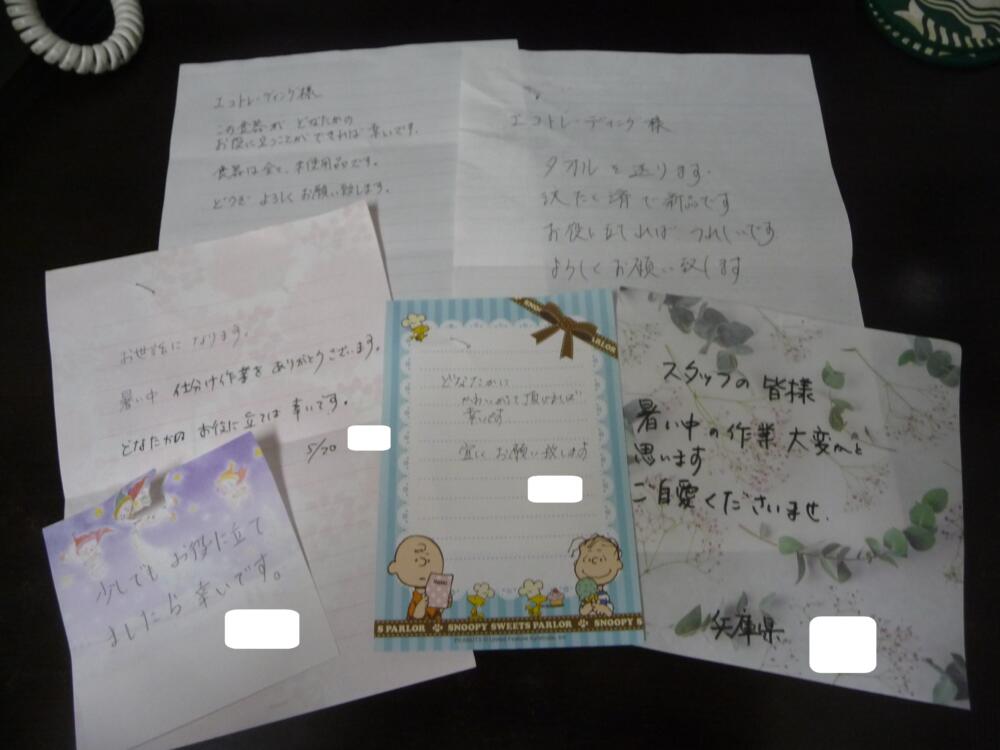 エコトレーディング様
この食器が どなたかの
お役に立つことができれば 幸いです。
食器は全て、未使用品です。
どうぞ よろしく お願い致します。
エコトレーディング様
タオルを送ります。
洗たく済で新品です
お役に立てれば うれしいです
よろしくお願い致します
お世話になります。
暑い中 仕分け作業を ありがとうございます。
どなたかの お役に立てば 幸いです。
5/20
少しでも お役に立て
ましたら 幸いです。
SNOO
ARLOR
どなたかに
かわいがって頂ければ
幸いです
宜しく お願い致します
S PARLOR SNOOPY SWEETS PARLOR SNOOPY S
スタッフの 皆様
暑い中の作業 大変かと
思います
ご自愛くださいませ.
兵庫県